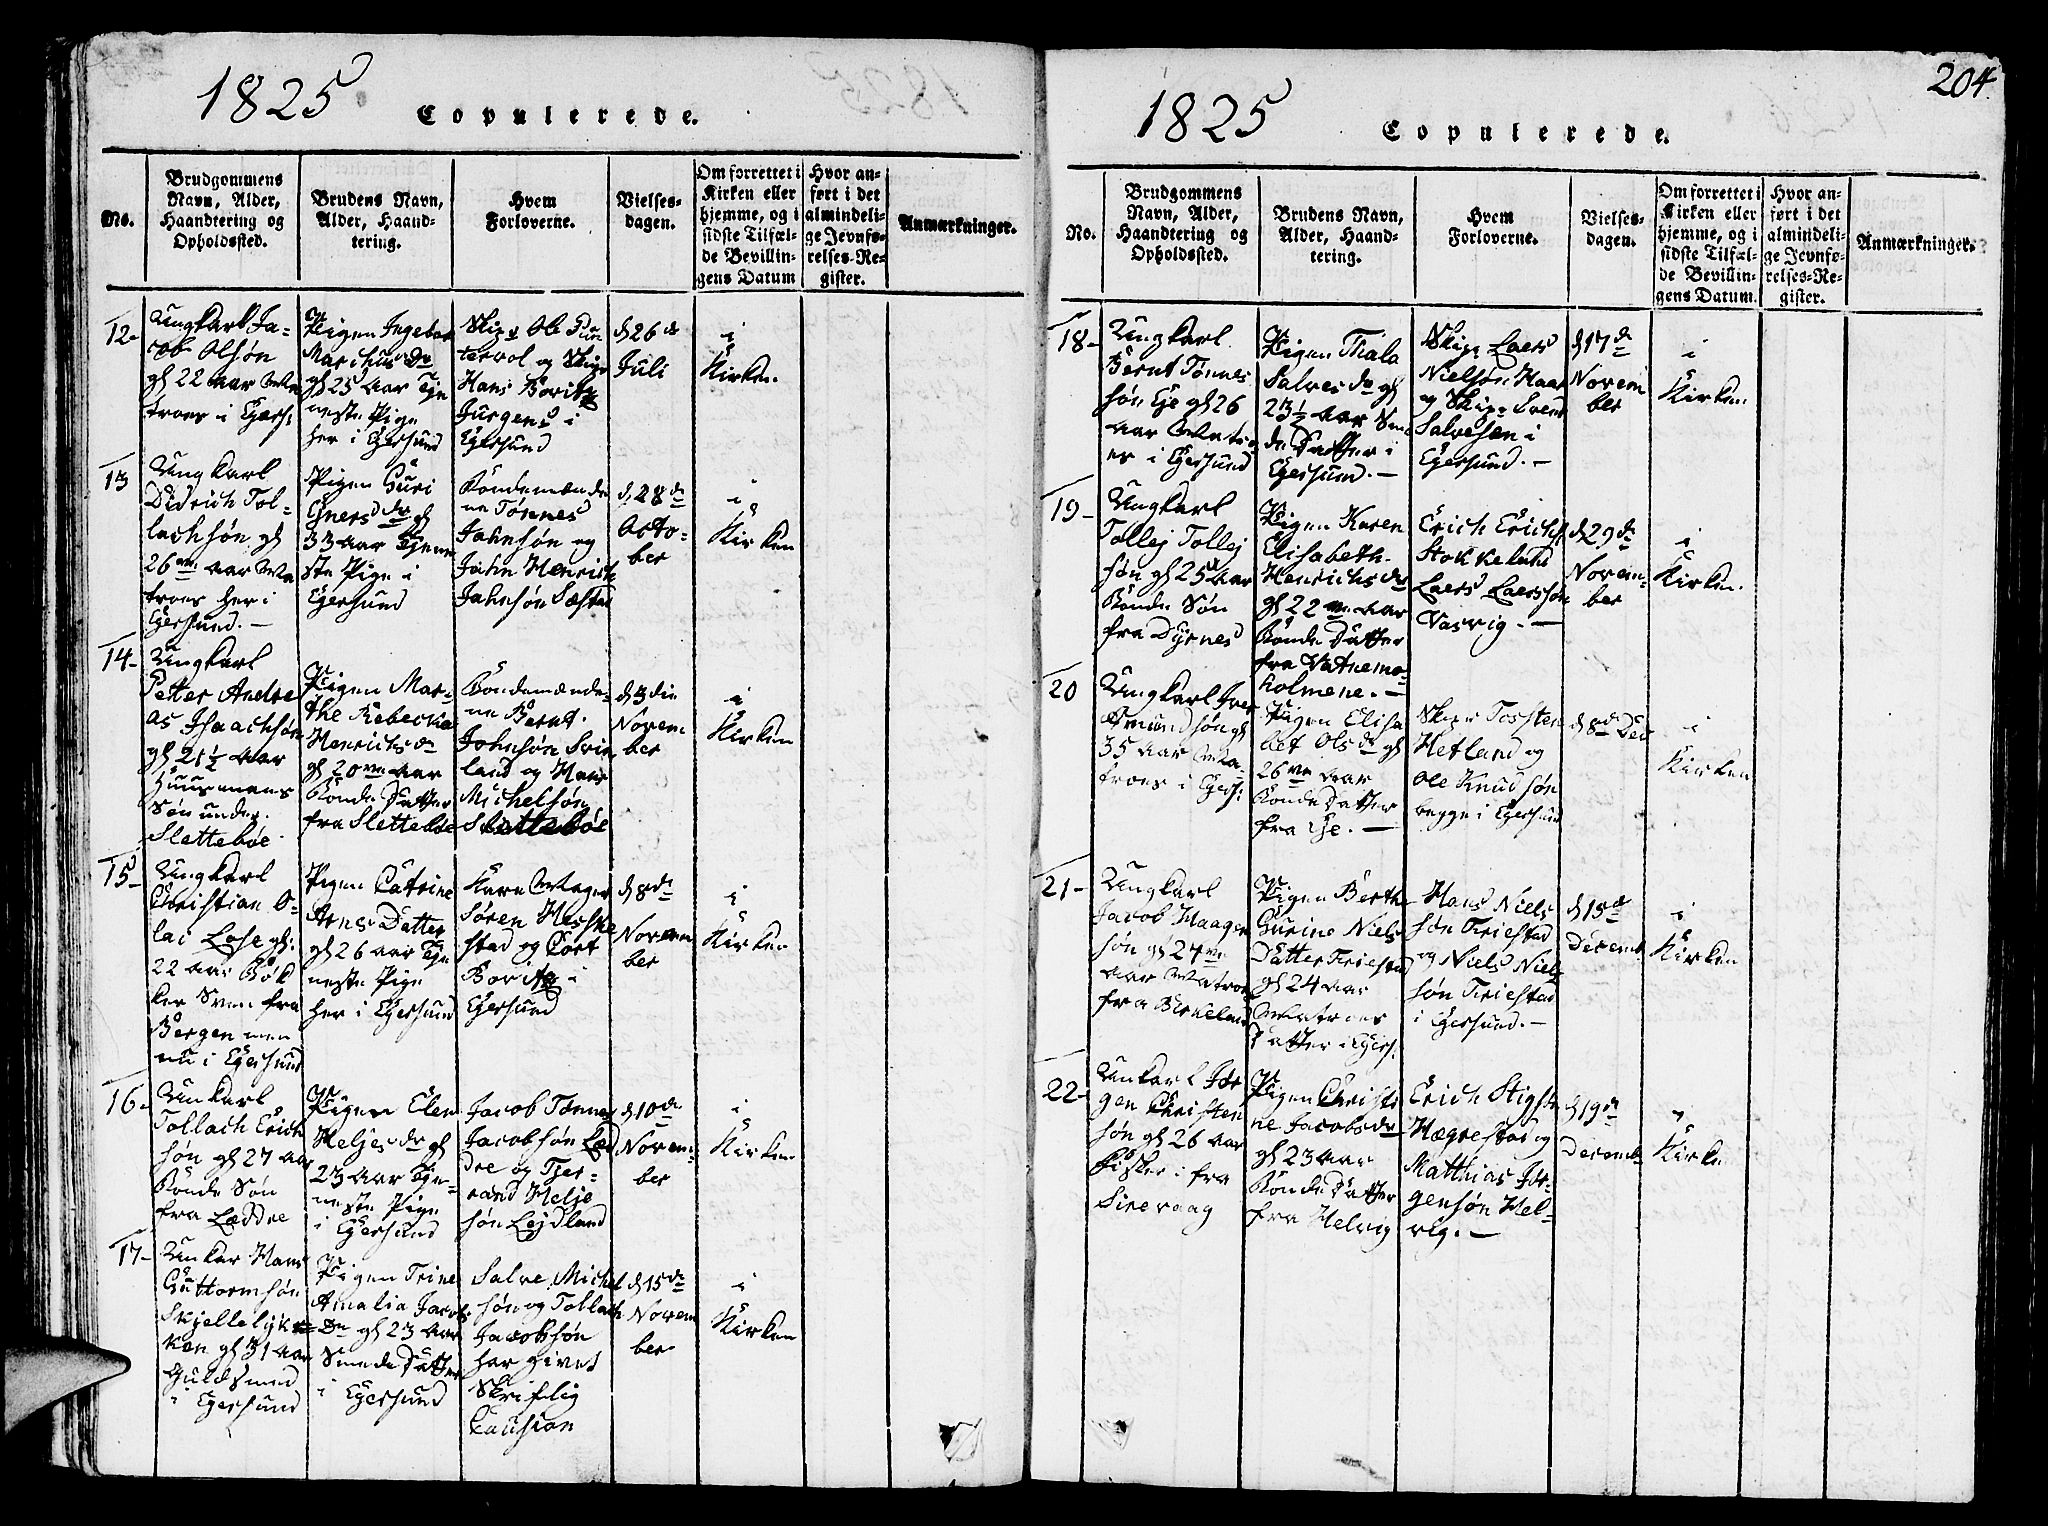 1825
Copulerede.
No.
Brudgommens
Navn, Alder,
Haandtering og
Opholdssted.
Brudens Navn,
Alder, Haand-
tering.
Hvem
Forloverne.
Vielses-
dagen.
Om forrettet i
Kirken eller
hjemme, og i
sidste Tilfæl-
de Bevillin-
gens Datum
Hvor an-
ført i det
almindeli-
ge Jevnfø-
relses-Re-
gister.
Anmærkninger.
12-
Ungkarl Ja-
cob Olsøn
gl 22 aar Ma
troes i Egers:
Pigen Ingebor
Marthus dr
gl 25 aar Tje
neste Pige
her i Egersund
Skipr Ole Pun
tervol og Skipr
Hans Boritz
Jurgens i
Egersund
d 26 de
Juli
i
Kirken.
13
Ungkarl
Didrich Tol-
lachsøn gl
26 aar Ma
troes her i
Egersund.-
Pigen Guri
Gners dr gl
33 aar Tjene
ste Pige i
Egersund
Bondemænde
ne Tønnes
Jahnsøn og
Jahn Henrich
Jahnsøn Sæstad
d, 28 de
Octo-
ber
i
Kirken
14-
Ungkarl
Petter Andre
as Isaachsøn
gl 21½ aar
Huusmans
Søn under
Slettebøe
Pigen Mar-
the Rebecka
Henrichs dr
gl 20 aar
Bonde Datter
fra Slettebøe
Bondemænde-
ne Bernt
Johnsøn Svin
land og Hans
Michelsøn
Slettebøe
d 3 die
Novem
ber
i
Kirken
15-
Ungkarl
Christian O-
lai Lose gl:
22 aar Bøk
ker Sven fra
Bergen men
nu i Egersund
Pigen Catrine
Arns Datter
gl 26 aar Tje
neste Pige
her i Egersund
Kare Mager
Søren Hesske
stad og Cort
Boritz i
Egersund
d 8 de
Novem
ber
i
Kirken
16-
Unkarl
Tollach Erich
søn gl 27 aar
Bonde Søn
fra Læddre
Pigen Elen
Heljes dr gl
23 aar Tje-
neste Pige
i Egersund
Jacob Tønnes
Jacobsøn Led
dre og Tjer-
rand Helje
søn Lejdland
d 10 de
Novem-
ber
i
Kirken
17-
Unkar Hans
Guttormsøn
Skjellelyk
ken gl 31 aar
Guldsmed
i Egersund
Pigen Trine
Amalia Jacobs
Dr gl 23 aar
Smede Datter
i Egersund
Salve Michel
søn og Tollach
Jacobsøn
har givet
Skriflig
Causion
d 15 de
Novem
ber
i
Kirken
1825
Copulerede.
204.
No.
Brudgommens
Navn, Alder,
Haandtering og
Opholdssted.
Brudens Navn,
Alder, Haand-
tering.
Hvem
Forloverne.
Vielses-
dagen.
Om forrettet i
Kirken eller
hjemme, og i
sidste Tilfæl-
de Bevillin-
gens Datum.
Hvor an-
ført i det
almindeli-
ge Jevnfø-
relses-Re-
gister.
Anmærkninger.
18-
Ungkarl
Bernt Tønnes
søn Eje gl 26
aar Matro
es i Egersund
Pigen Thala
Salves dr gl
23½ aar Sme
de Datter i
Egersund.-
Skipr Laers
Nielsøn Haar
og Skipr Sven
Salvesen i
Egersund.-
d 17 de
Novem
ber
i
Kirken
19-
Ungkarl
Tollej Tollej
søn gl 25 aar
Bonde Søn
fra Dyrnes
Pigen Karen
Elisabeth
Henrichs dr
gl 22 aar
Bonde Datter
fra Vatnemo-
holmene.-
Erich Erichs
Stokkelund
Laers Laersøn
Vasvig.-
d 29 de
Novem-
ber
i
Kirken.
20
Ungkarl Iver
Omundsøn gl
35 aar Ma-
troes i Egers:
Pigen Elisa
bet Ols dr gl
26 aar
Bonde Datter
fra Eje.-
Skipr Tosten
Hetland og
Ole Knudsøn
begge i Egersund
d 8 de Dec
i
Kirken
21-
Ungkarl
Jacob Haagen
søn gl 27
aar Matroes
fra Birkeland
Pigen Berthe
Gurine Niels
Datter Triestad
gl 24 aar
Matroes
Datter i Egers:
Hans Niels
søn Triestad
og Niels Niels
søn Triestad
i Egersund.-
d 15 de
Decemb
i
Kirken
22-
Unkarl Jør
gen Christen
søn gl 26 aar
Fisker i fra
Sirevaag
Pigen Christi
ne Jacobs dr
gl 23 aar
Bonde Datter
fra Helvig
Erich Stigsøn
Hægrestad og
Matthias Jør-
gensøn Hel-
vig.-
d 19 de
Decemb
i
Kirken